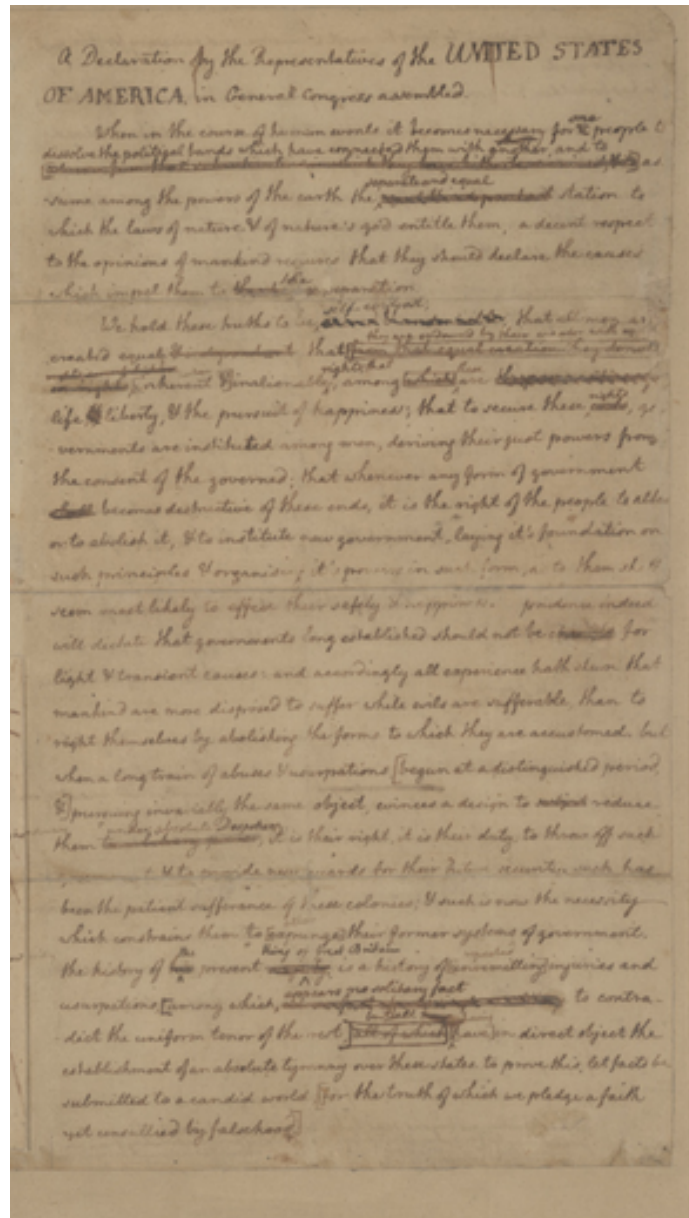 A Declaration by the Representatives of the UNITED STATES
OF AMERICA, in General Congress assembled.
When in the course of human events it becomes necessary for one people to
dissolve the political bands which have connected them with another, and to
as
sume among the powers of the earth the separate and equal station to
which the laws of nature & of nature's god entitle them, a decent respect
to the opinions of mankind requires that they should declare the causes
which impel them to the separation.
We hold these truths to be self-evident; that all men are
created equal that they are endowed by their creator with
rights that
inherent & inalienable, among these are
life, liberty, & the pursuit of happiness; that to secure these rights, go
vernments are instituted among men, deriving their just powers from
the consent of the governed; that whenever any form of government
becomes destructive of these ends, it is the right of the people to alter
or to abolish it, & to institute new government, laying it's foundation on
such principles & organising it's powers in such form, as to them shall
seem most likely to effect their safety & happiness. prudence indeed
will dictate that governments long established should not be changed for
light & transient causes: and accordingly all experience hath shewn that
mankind are more disposed to suffer while evils are sufferable, than to
right themselves by abolishing the forms to which they are accustomed. but
when a long train of abuses & usurpations [begun at a distinguished period,
&] pursuing invariably the same object, evinces a design to reduce
them under absolute Despotism, it is their right, it is their duty, to throw off such
& to provide new guards for their future security. such has
been the patient sufferance of these colonies; & such is now the necessity
which constrains them to [expunge] their former systems of government.
the history of the present king of Great Britain is a history of [unremitting] injuries and
usurpations, [among which, appears no solitary fact to contra-
dict the uniform tenor of the rest, all of which [have] in direct object the
establishment of an absolute tyranny over these states. to prove this, let facts be
submitted to a candid world [for the truth of which we pledge a faith
yet unsullied by falsehood]